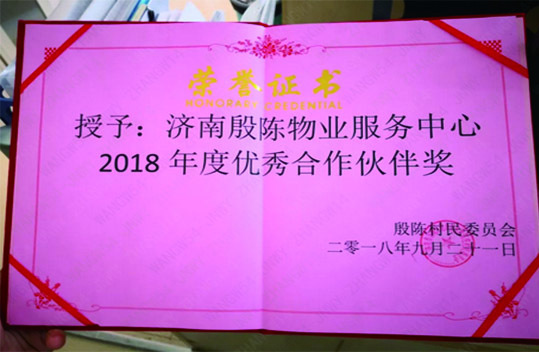 荣誉证书
HONORARY CREDENTIAL
授予：济南殷陈物业服务中心
2018 年度优秀合作伙伴奖
殷陈村民委员会
二零一八年九月二十一日